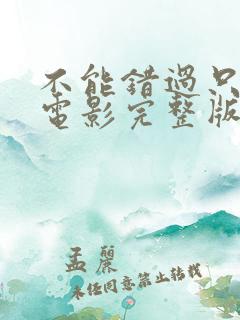 不能错過只
電影完整版
孟麗
未经同意禁止转载